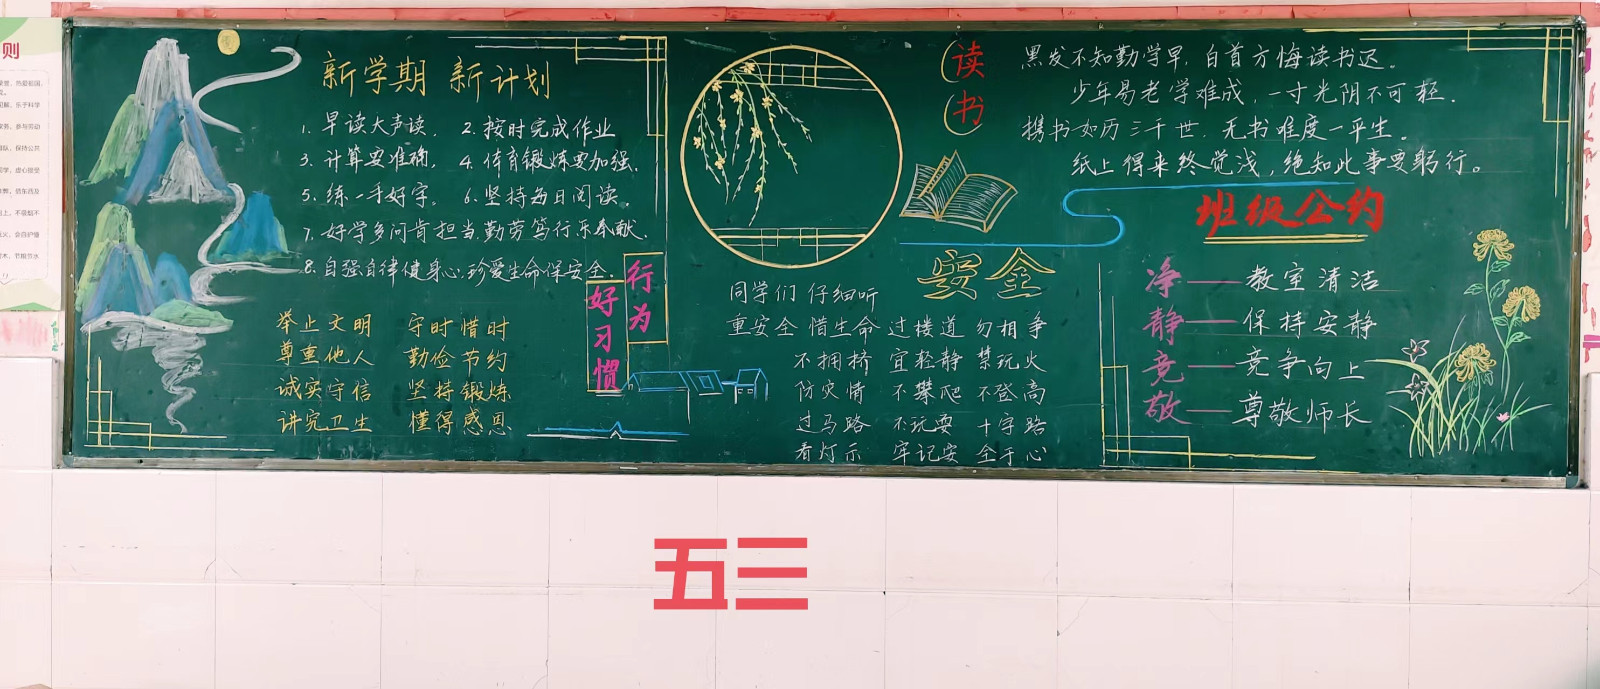 则
新学期 新计划
1. 早读大声读. 2. 按时完成作业
3. 计算要准确. 4. 体育锻炼要加强.
5. 练一手好字. 6. 坚持每日阅读.
7. 好学多问肯担当,勤劳笃行乐奉献.
8. 自强自律健身心,珍爱生命保安全.
行为
好习惯
举止文明 守时惜时
尊重他人 勤俭节约
诚实守信 坚持锻炼
讲究卫生 懂得感恩
读书
黑发不知勤学早,白首方悔读书迟。
少年易老学难成,一寸光阴不可轻.
携书如历三千世,无书唯度一平生。
纸上得来终觉浅,绝知此事要躬行。
安全
同学们 仔细听
重安全 惜生命 过楼道 勿相争
不拥挤 宜轻静 禁玩火
防灾情 不攀爬 不登高
过马路 不玩耍 十字路
看灯示 牢记安 全于心
班级公约
净——教室清洁
静——保持安静
竞——竞争向上
敬——尊敬师长
五三